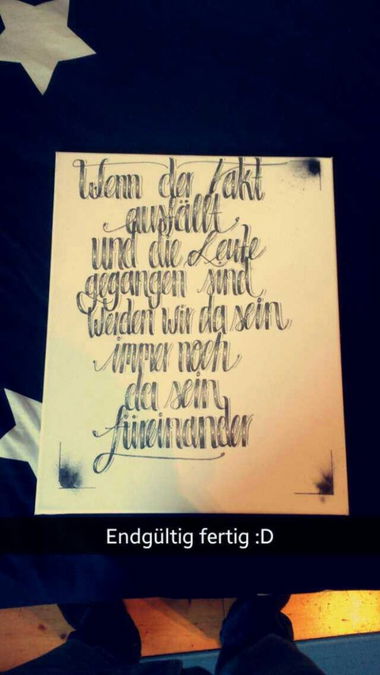 Wenn der Takt
ausfällt
und die Leute
gegangen sind
Werden wir da sein
immer noch
da sein
füreinander
Endgültig fertig :D